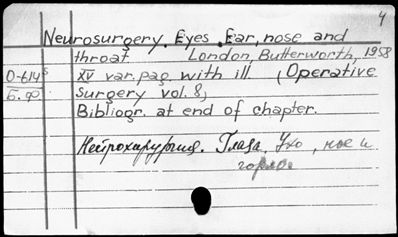 4
Neurosurgery. Eyes. Ear, nose and
throat London, Butterworth, 1958
0-614⁵ XV var. pag. with ill (Operative
Б. ф. surgery vol. 8)
Bibliogr. at end of chapter.
Нейрохирургия. Глаза, Ухо, нос и
горло